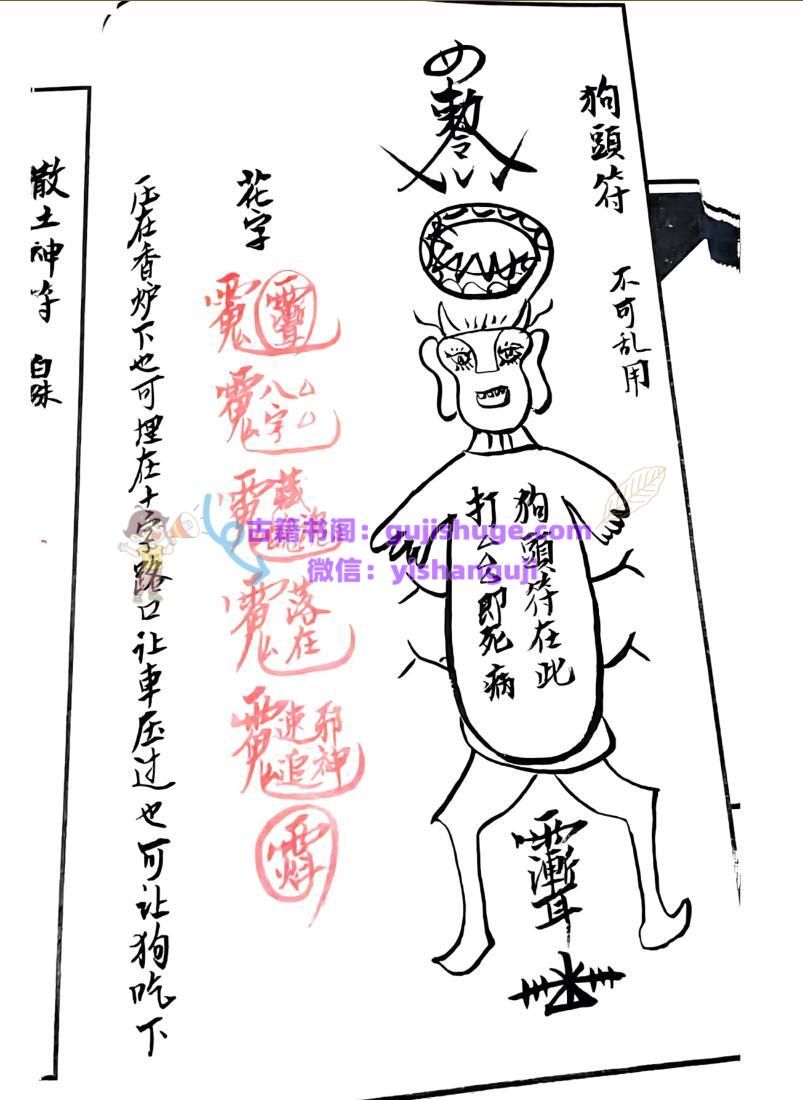 狗頭符
不可乱用
敕令
狗頭符在此
打厶厶即死病
花字
八字
厶厶
藏
落在
速追
邪神
压在香炉下也可埋在十字路口让車压过也可让狗吃下
散土神符
白硃
古籍书阁：gujishuge.com
微信：yishanguji